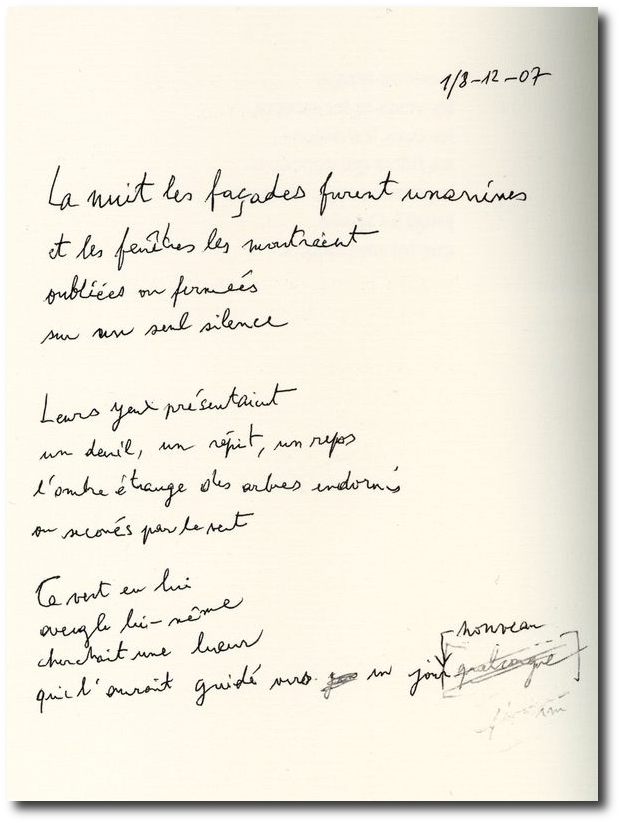 1/8-12-07
La nuit les façades furent unanimes
et les fenêtres les montraient
oubliées ou fermées
sur un seul silence
Leurs yeux présentaient
un deuil, un répit, un repos
l'ombre étrange des arbres endormis
ou secoués par le vent
Ce vent en lui
aveugle lui-même
cherchait une lueur
nouveau
qui l'aurait guidé vers un jour quelconque